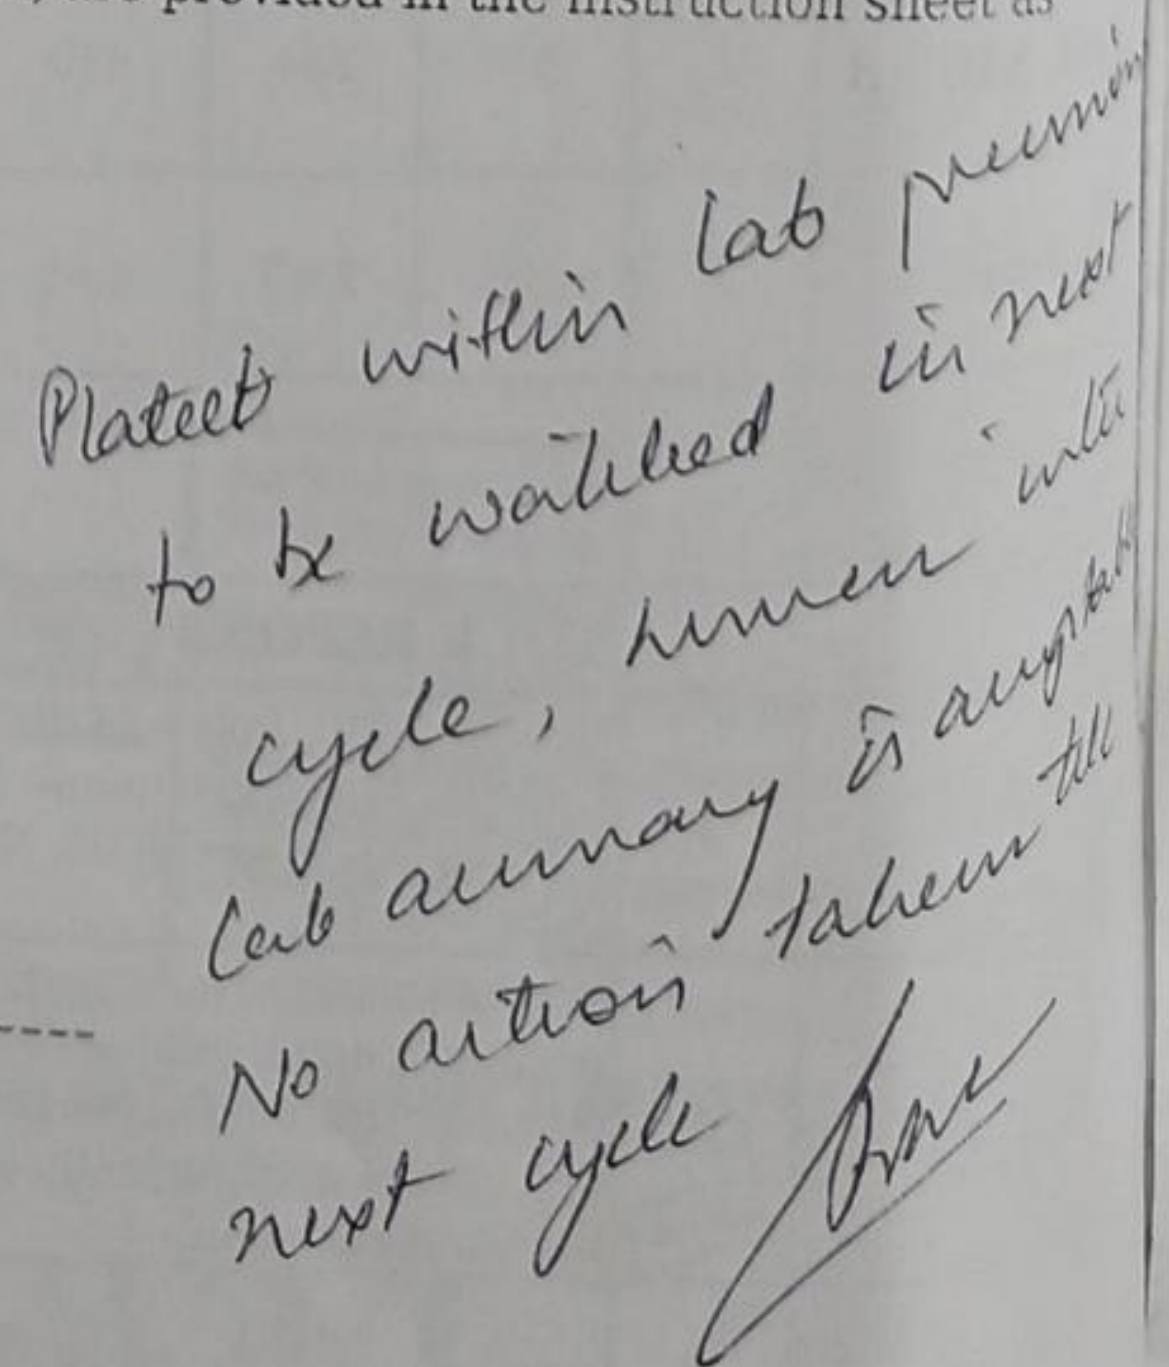 provided in the instruction sheet as
Platelet within lab precision
to be watched in next
cycle, however inter
lab accuracy is acceptable
No action taken till
next cycle